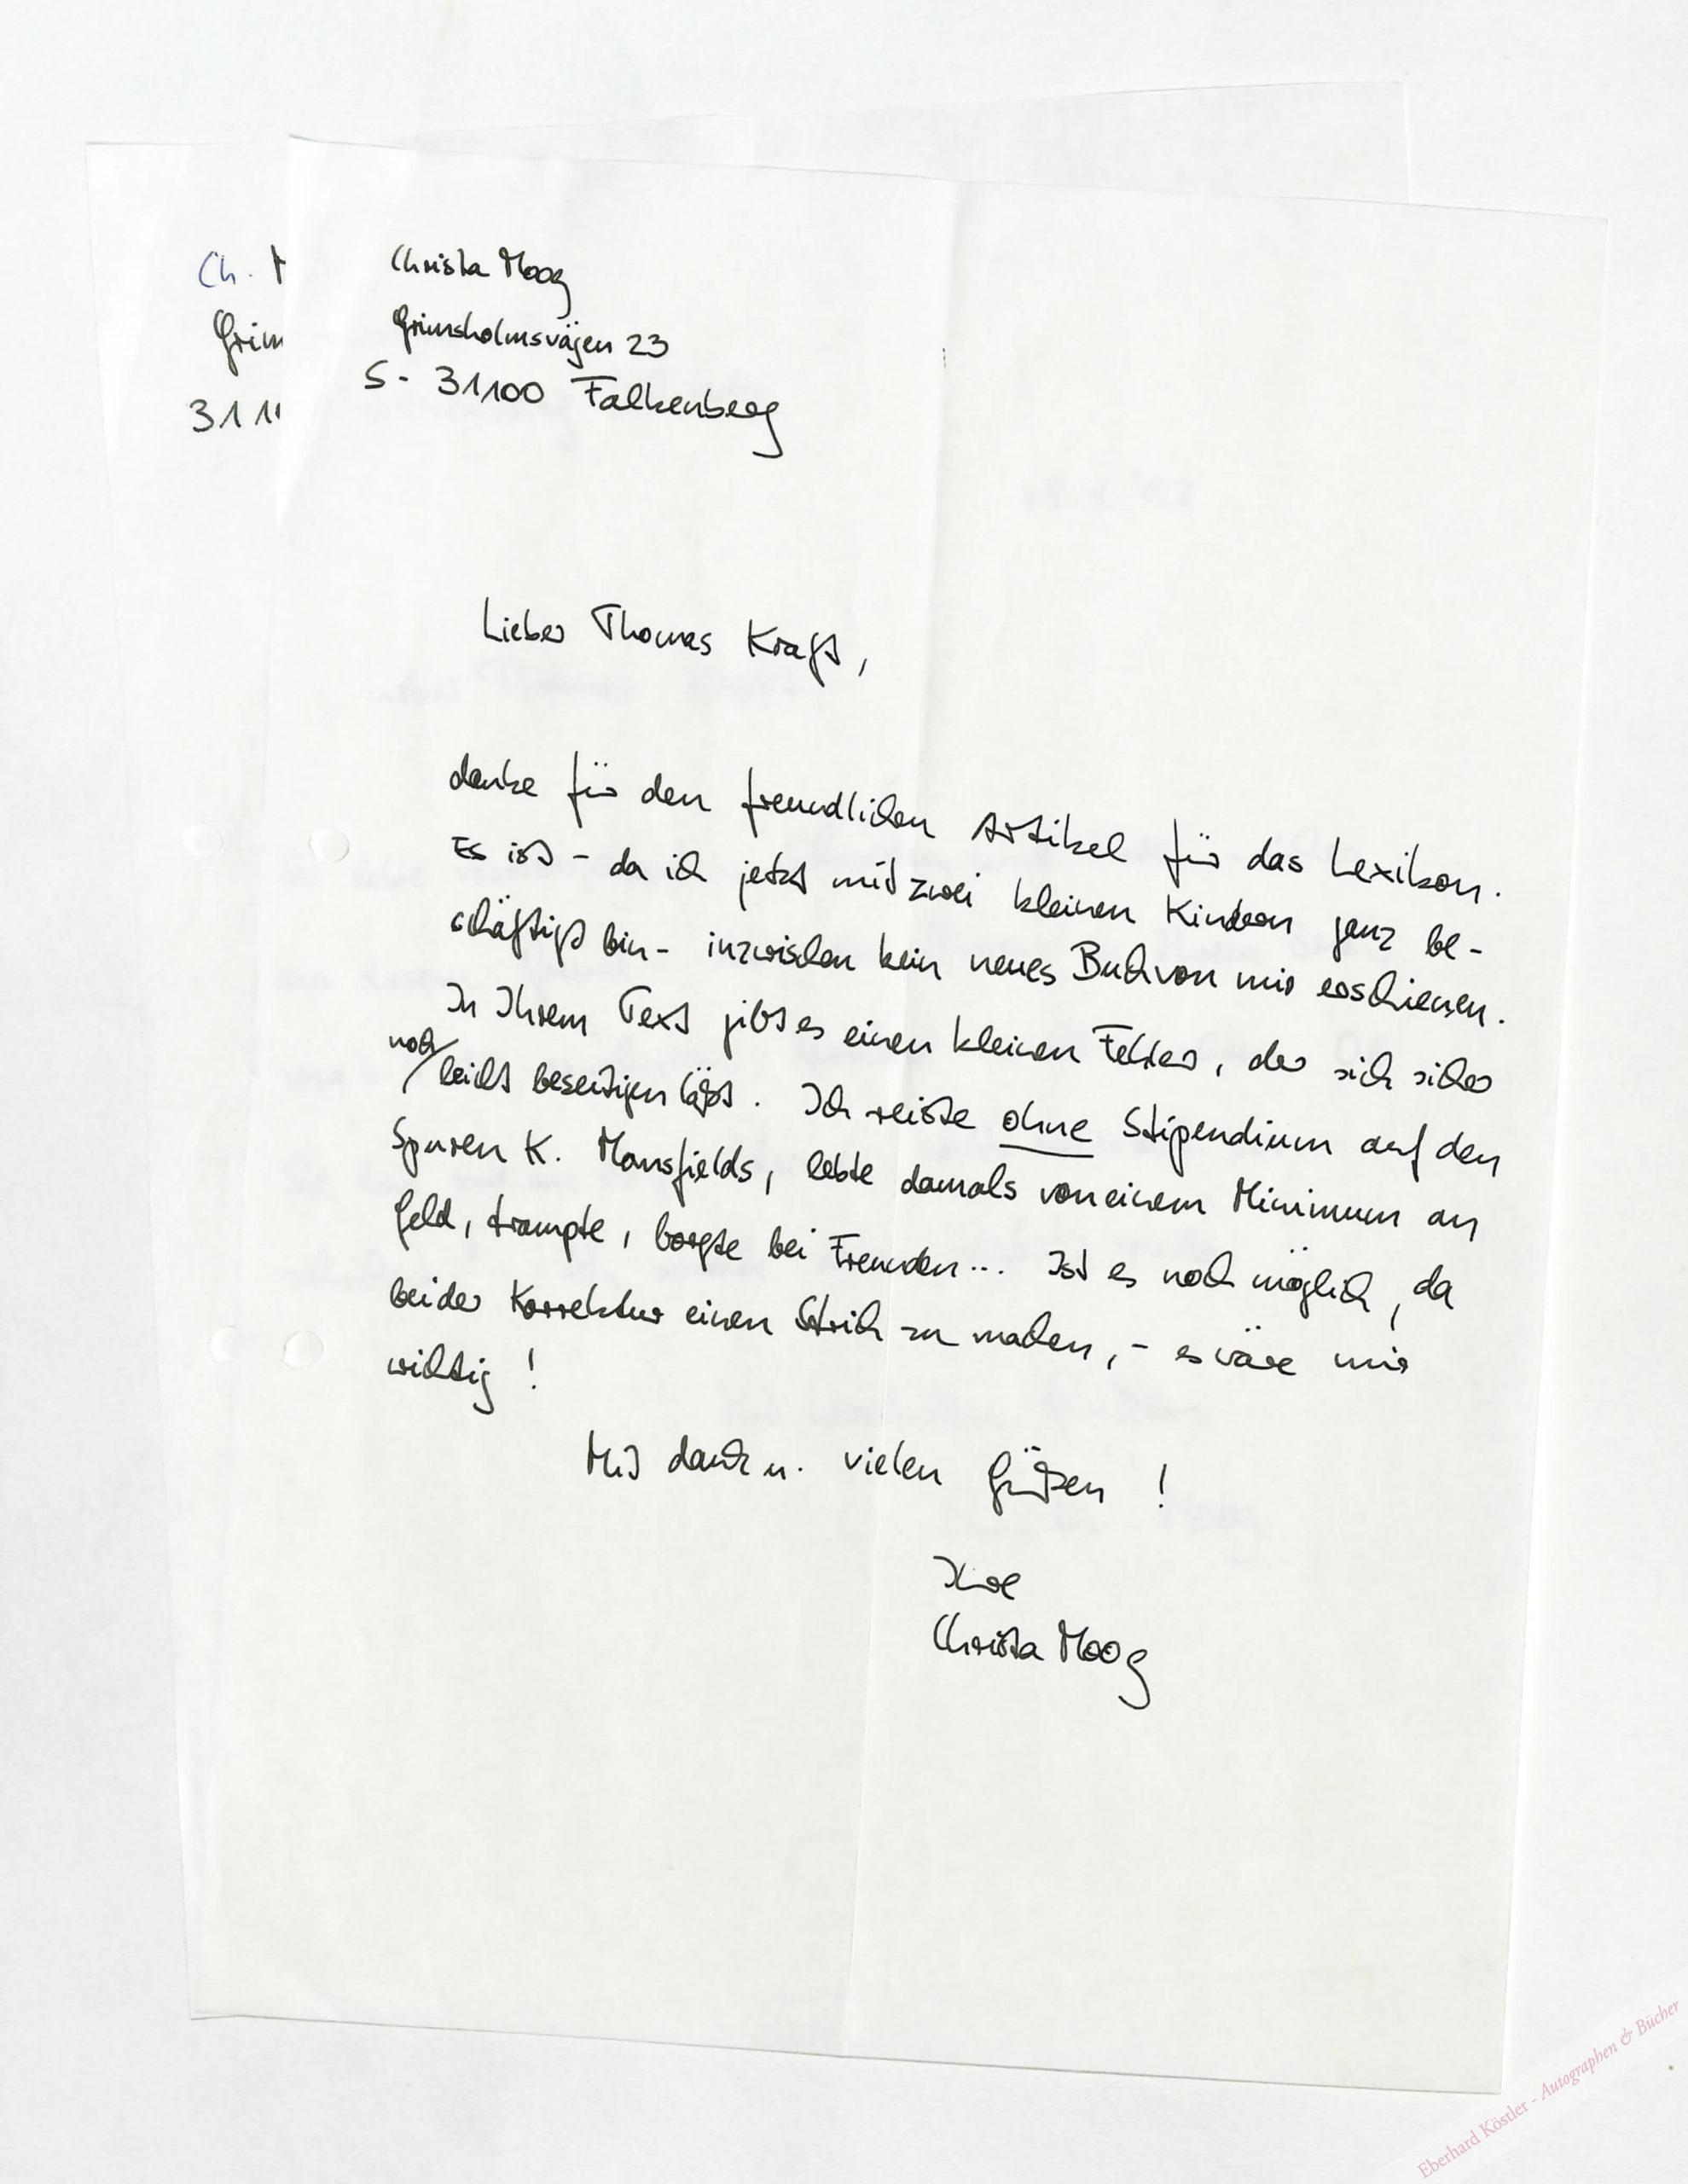 Ch. M
Grim
311
Christa Moog
Grimsholmsvägen 23
S- 31100 Falkenberg
Lieber Thomas Kraft,
danke für den freundlichen Artikel für das Lexikon.
Es ist - da ich jetzt mit zwei kleinen Kindern ganz be-
schäftigt bin - inzwischen kein neues Buch von mir erschienen.
In Ihrem Text gibt es einen kleinen Fehler, der sich sicher
noch
leicht beseitigen läßt. Ich reiste ohne Stipendium auf den
Spuren K. Mansfields, lebte damals von einem Minimum an
Geld, trampte, borgte bei Freunden... Ist es noch möglich, da
bei der Korrektur einen Strich zu machen, - es wäre mir
wichtig!
Mit Dank u. vielen Grüßen!
Ihre
Christa Moog
Eberhard Köstler - Autographen & Bücher